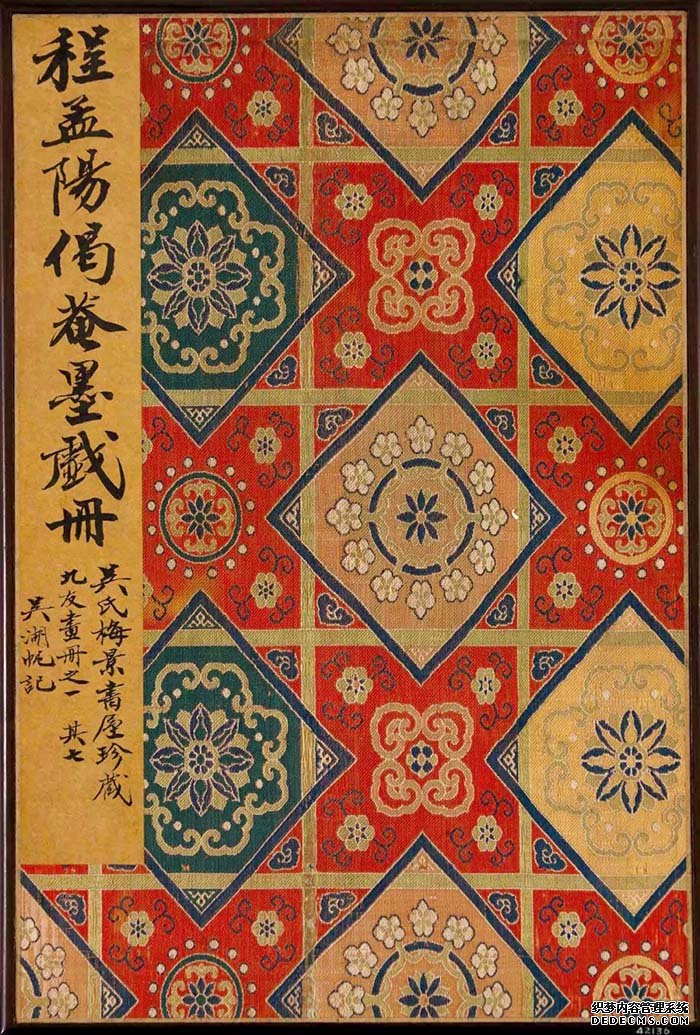 程孟陽偈菴墨戲冊
吳氏梅景書屋珍藏
九友畫冊之一 其七
吳湖帆記
织梦内容管理系统
DEDECMS.COM
42136